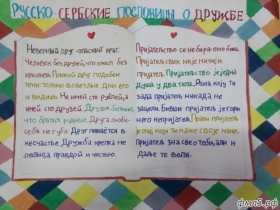 РУССКО-СЕРБСКИЕ ПОСЛОВИЦЫ О ДРУЖБЕ
Неверный друг-опасный враг.
Человек без друзей, что сокол без
крыльев. Плохой друг подобен
тени: только в светлые дни его
и видишь. Не имей сто рублей, а
имей сто друзей. Друзья
что братья родные. Друга люби-
себя не губи. Друг познаётся в
несчастье. Дружба крепка не
лестью, а правдой и честью.
Пријатељство се не бира-оно бива.
Пријатељ свих није ничији
пријатељ. Пријатељство је једна
душа у два тела. Рана коју ти
зада пријатељ никада не
зацели. Бивши пријатељ је гори
него непријатељ. Прави пријатељ
је онај који ти каже своје мане.
Пријатељ зна све о теби, али и
даље те воли.
фмоб.рф